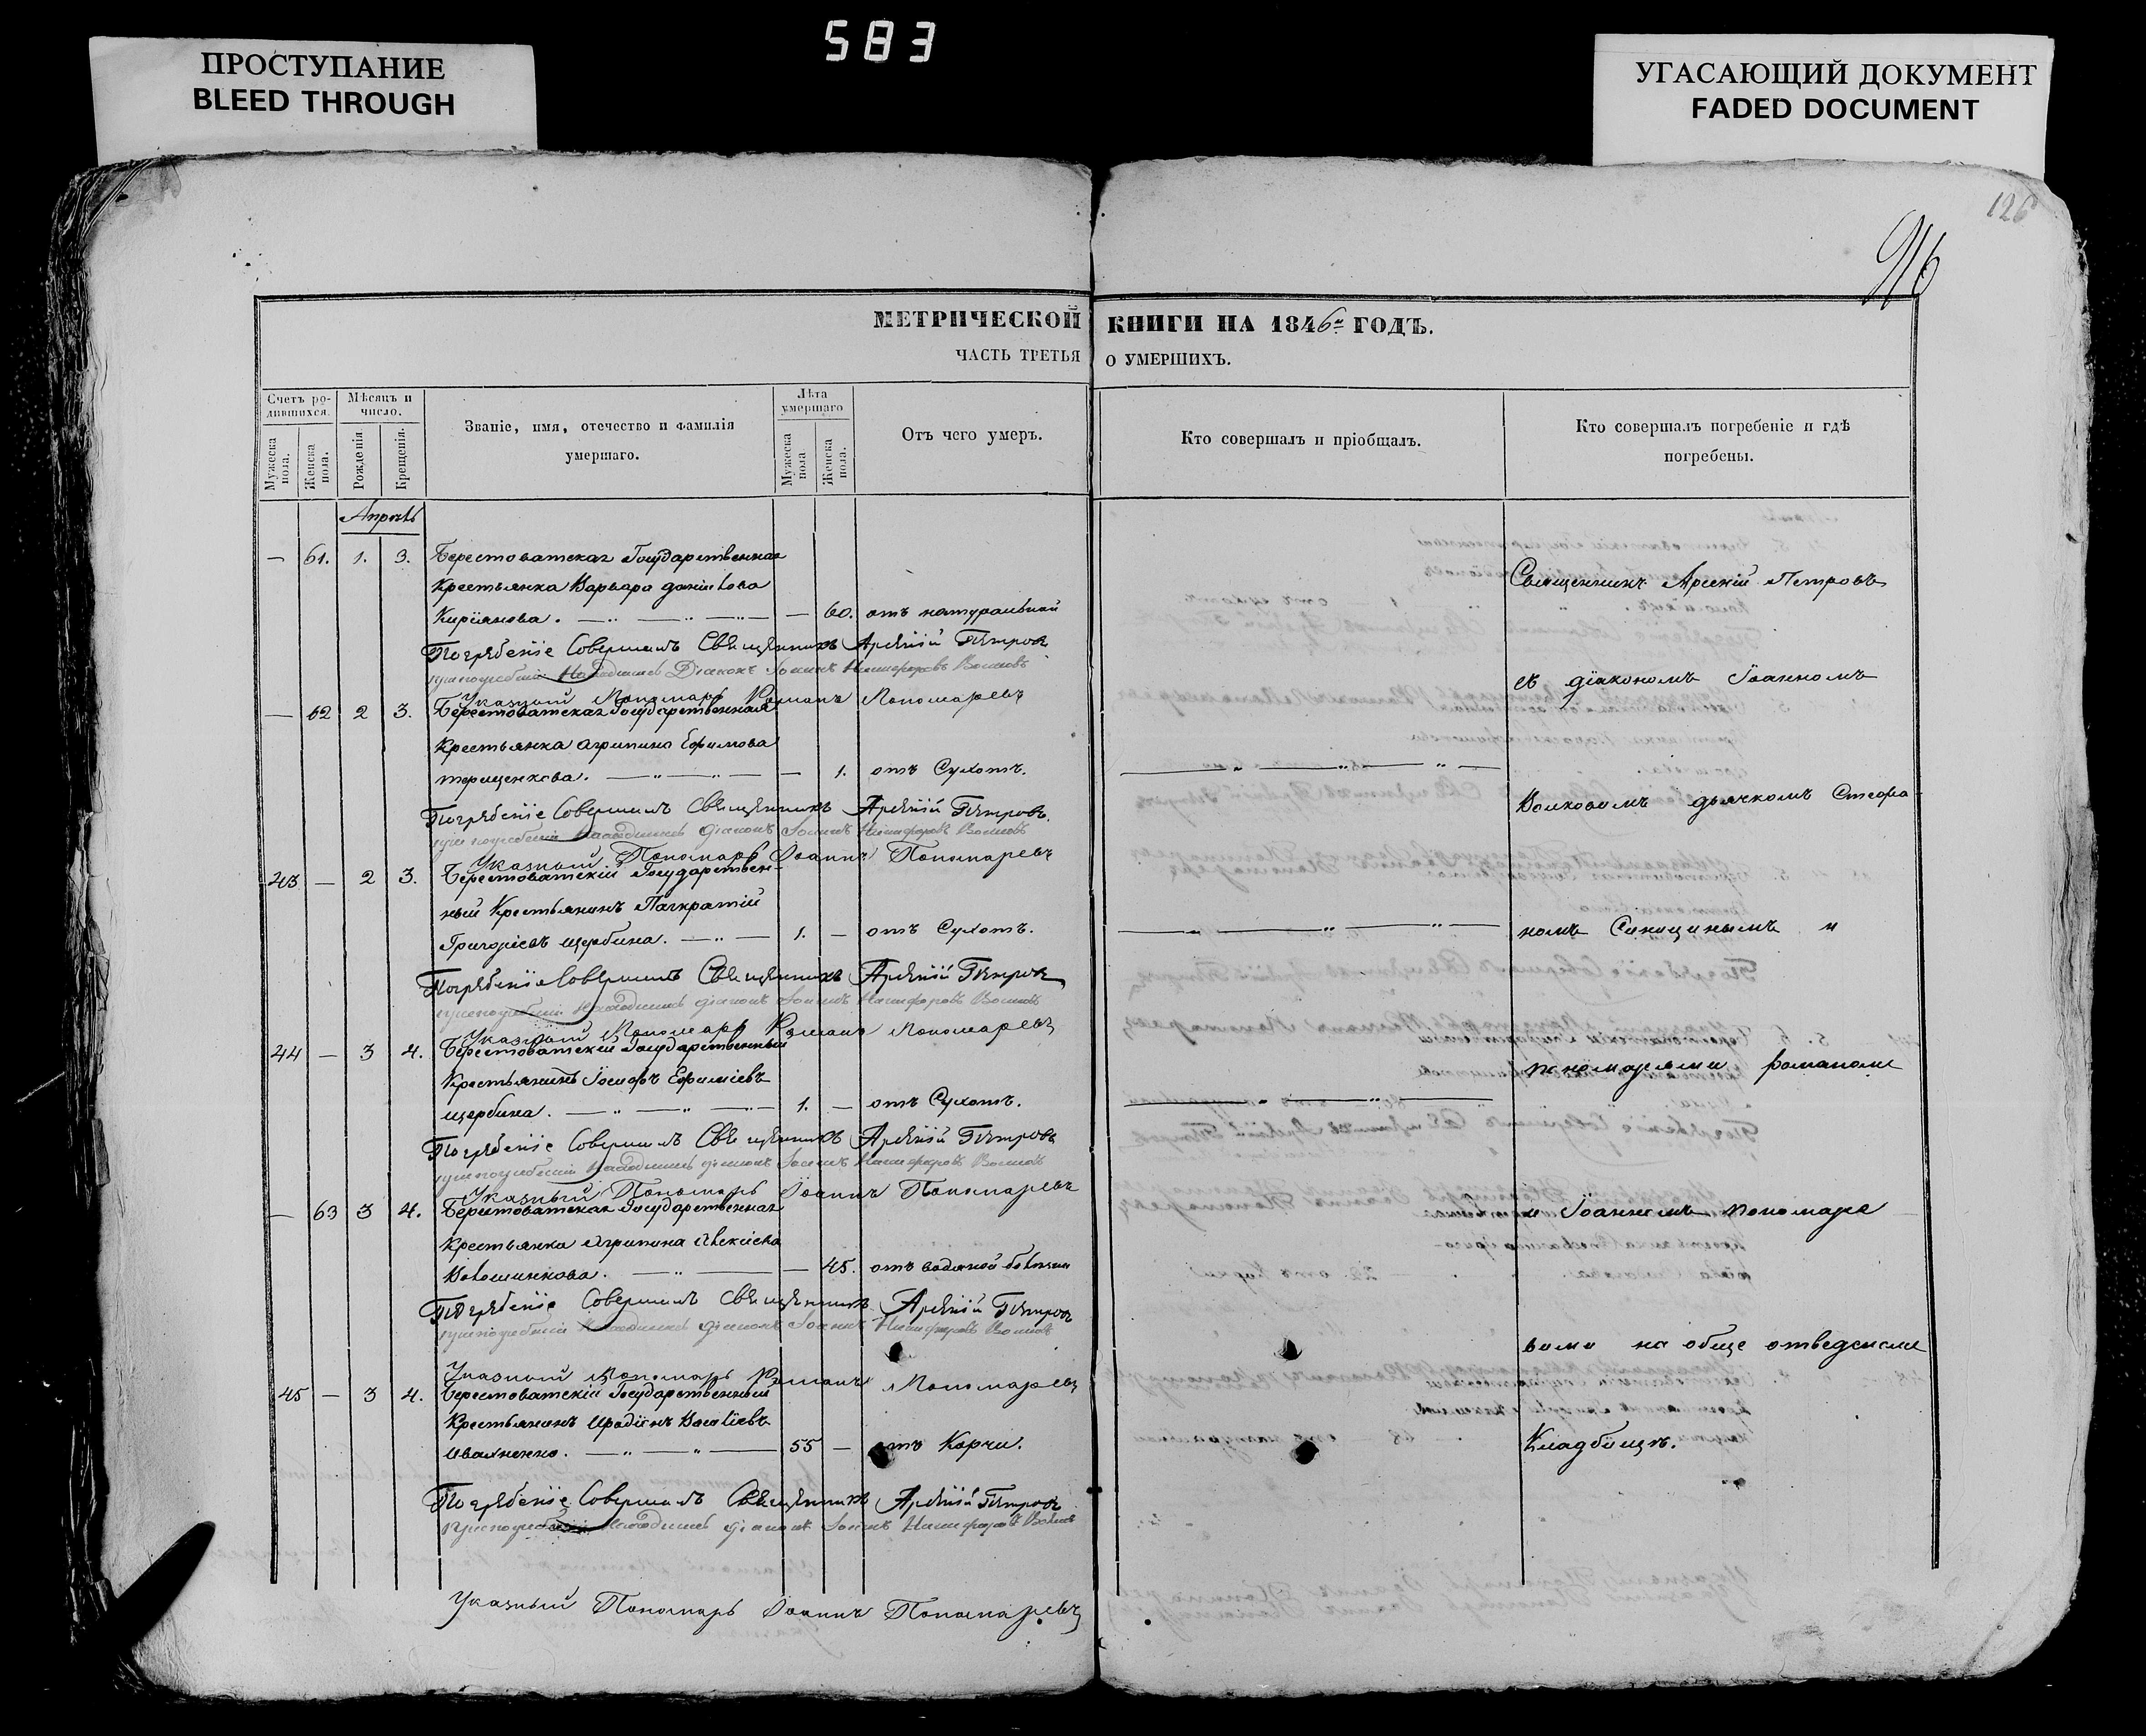 583
ПРОСТУПАНИЕ
BLEED THROUGH
УГАСАЮЩИЙ ДОКУМЕНТ
FADED DOCUMENT
126
916
МЕТРИЧЕСКОЙ КНИГИ НА 1846й ГОДЪ.
ЧАСТЬ ТРЕТЬЯ О УМЕРШИХЪ.
Счетъ родившихся.
Мужеска пола.
Женска пола.
Мѣсяцъ и число.
Рожденія
Крещенія.
Званіе, имя, отечество и фамилія умершаго.
Лѣта умершаго
Мужеска пола
Женска пола.
Отъ чего умеръ.
Кто совершалъ и пріобщалъ.
Кто совершалъ погребеніе и гдѣ погребены.
Апрель
— 61. 1. 3. Берестоватская Государственная
Крестьянка Варвара Данилова
Кирїянова. — 60. отъ натуральной
Погребеніе Совершилъ Священникъ Арсеній Петровъ
при погребеніи Находился Діаконъ Іоаннъ Никифоровъ Волковъ
Указный Пономарь Романъ Пономаревъ
— 62 2 3. Берестоватская Государственная
Крестьянка Агрипина Ефимова
терещенкова. — 1. отъ Сухотъ.
Погребеніе Совершилъ Священникъ Арсеній Петровъ.
при погребеніи Находился діаконъ Іоаннъ Никифоровъ Волковъ
Указный Пономарь Іоаннъ Пономаревъ
43 — 2 3. Берестоватскій Государствен-
ный Крестьянинъ Панкратій
Григоріевъ щербина. 1. — отъ Сухотъ.
Погребеніе Совершилъ Священникъ Арсеній Петровъ
при погребеніи Находился діаконъ Іоаннъ Никифоровъ Волковъ
Указный Пономарь Романъ Пономаревъ
44 — 3 4. Берестоватскій Государственный
Крестьянинъ Іосифъ Ефиміевъ
щербина. 1. — отъ Сухотъ.
Погребеніе Совершилъ Священникъ Арсеній Петровъ
при погребеніи Находился діаконъ Іоаннъ Никифоровъ Волковъ
Указный Пономарь Іоаннъ Пономаревъ
— 63 3 4. Берестоватская Государственная
Крестьянка Агрипина Алексіева
Волошинкова. — 45. отъ водяной болезни
Погребеніе Совершилъ Священникъ Арсеній Петровъ
при погребеніи Находился діаконъ Іоаннъ Никифоровъ Волковъ
Указный Пономарь Романъ Пономаревъ
45 — 3 4. Берестоватскій Государственный
Крестьянинъ Иродіонъ Василіевъ
55 — отъ Корчи.
Погребеніе Совершилъ Священникъ Арсеній Петровъ
при погребеніи Находился діаконъ Іоаннъ Никифоровъ Волковъ
Указный Пономарь Іоаннъ Пономаревъ
Священникъ Арсеній Петровъ
съ діакономъ Іоанномъ
Волковымъ дьячкомъ Стефа-
номъ Синицинымъ и
пономарями романомъ
и Іоанномъ пономаре
выми на обще отведеномъ
Кладбищѣ.